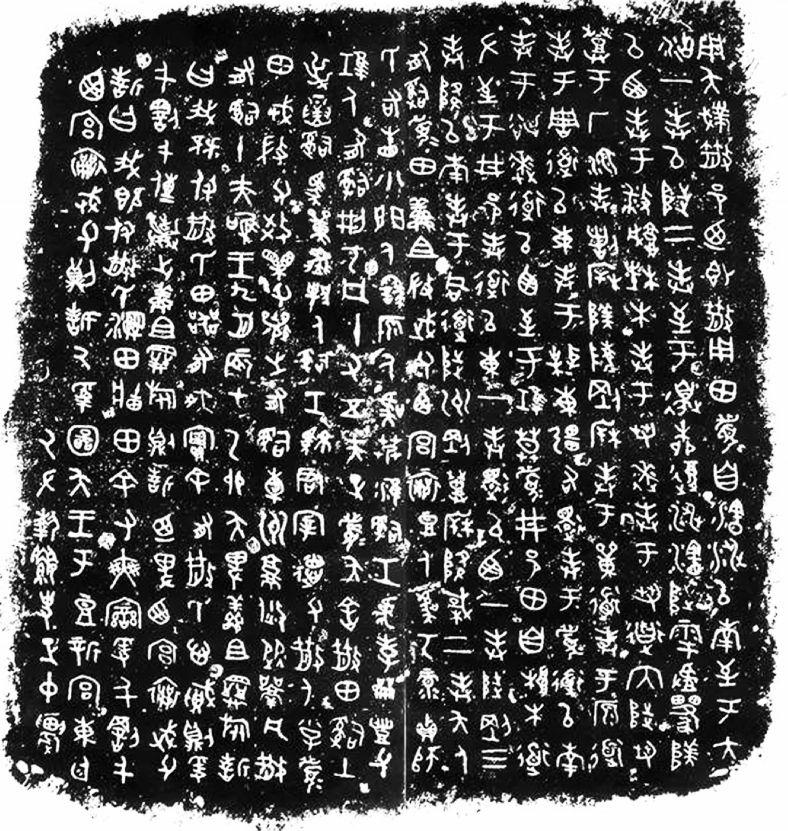 用夨散邑乃即散用田眉自瀗涉以南至于大
沽一封以陟二封至于邊柳復涉瀗陟雩
以西封于播城楮木封于芻逨封于芻道內陟芻
登于厂湶封陵剛封于單道封于原道
封于周道以東封于東疆右還封于眉道以南
封于逨道以西至于堆莫眉井邑田自根木道
左至于井邑封道以東一封還以西一封陟剛三
封降以南封于同道陟州剛登降棫二封夨人
有嗣眉田鮮且微武父西宮襄豆人虞丂彔貞師
氏右眚小門人繇原人虞艿淮嗣工虎孝開豐父
堆人有嗣刑丂凡十又五夫正眉夨舍散田嗣土
逆寅嗣馬單邦人嗣工君宰德父散人小子眉
田戎微父效父襄之有嗣橐州就焂從凡散
有嗣十夫唯王九月辰在乙卯夨卑鮮且旅誓
曰我既付散氏田器有爽實余有散氏心賊則爰
千罰千傳棄之鮮且旅則誓迺卑西宮襄武父
誓曰我既付散氏濕田牆田余有爽變爰千罰千
西宮襄武父則誓厥受圖夨王于豆新宮東廷
厥左執史正中農